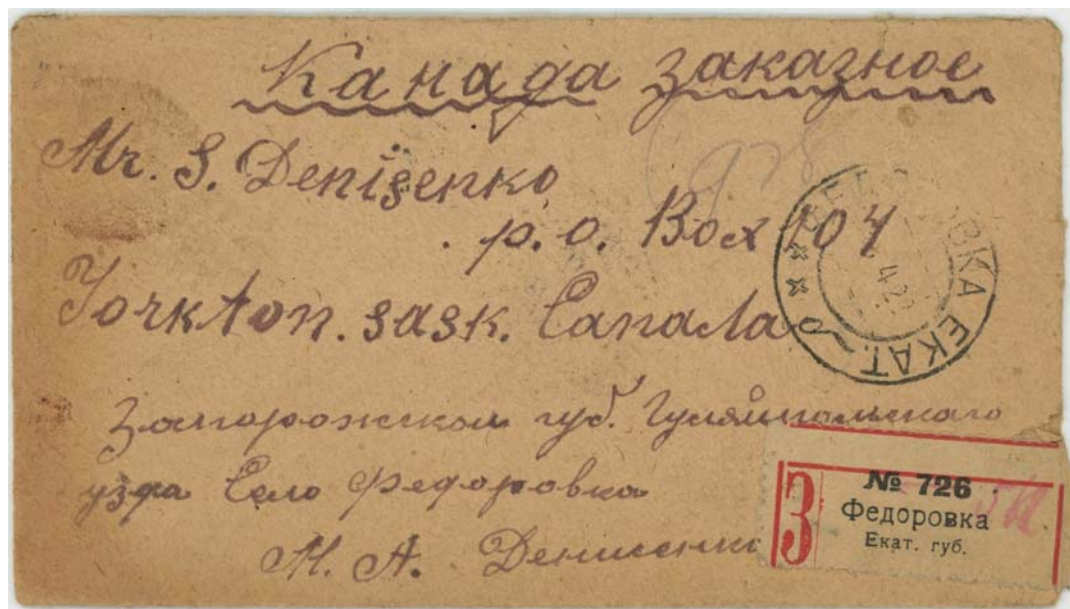 Канада заказное
Mr. S. Denisenko
p. o. Box 104
Yorkton. sask. Canada
Запорожской губ. Гуляйпольскаго
узда Село Федоровка
М. А. Денисенко
ФЕДОРОВКА ЕКАТ.
З
№ 726
Федоровка
Екат. губ.